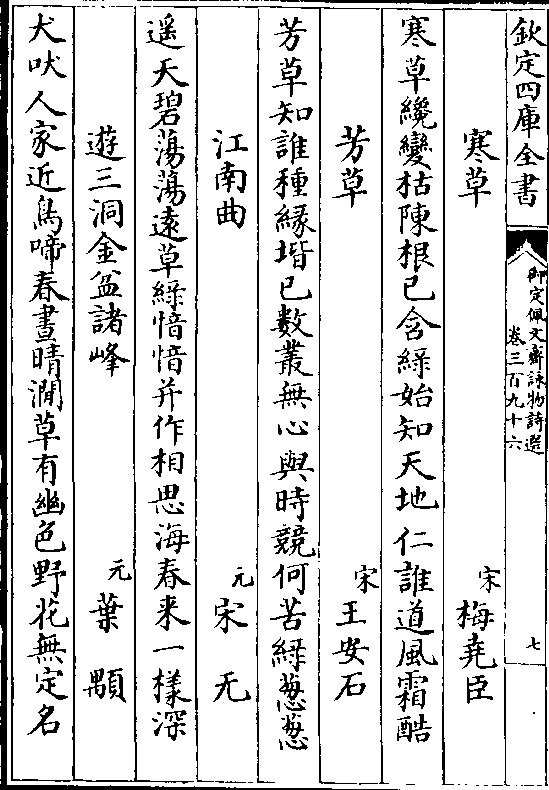 欽定四庫全書
御定佩文齋詠物詩選
卷三百九十六
七
寒草 宋 梅堯臣
寒草纔變枯陳根已含緑始知天地仁誰道風霜酷
芳草 宋 王安石
芳草知誰種緣堦已數叢無心與時競何苦緑葱葱
江南曲 元 宋无
遥天碧蕩蕩遠草緑愔愔并作相思海春来一樣深
遊三洞金盆諸峰 元 葉顒
犬吠人家近鳥啼春晝晴澗草有幽色野花無定名